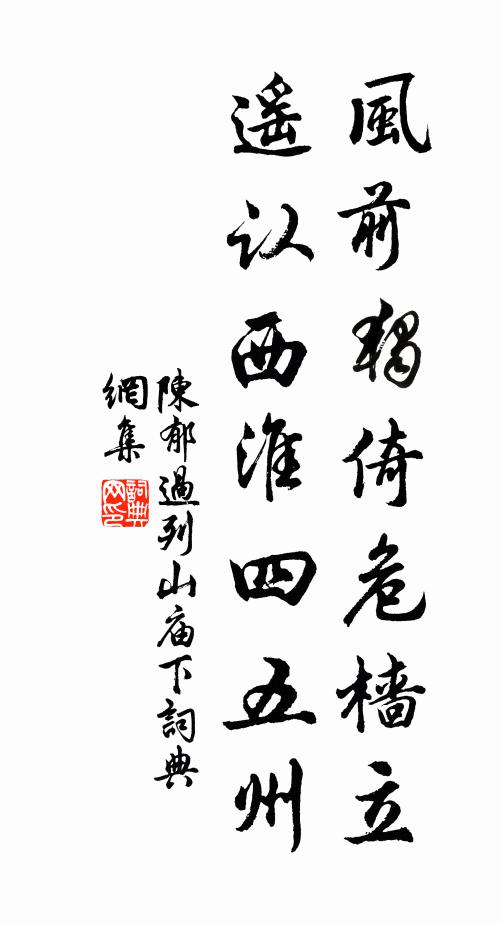 風前獨倚危檣立
遥认西淮四五州
陳郁過列山庙下詞典
網集
詞典網印